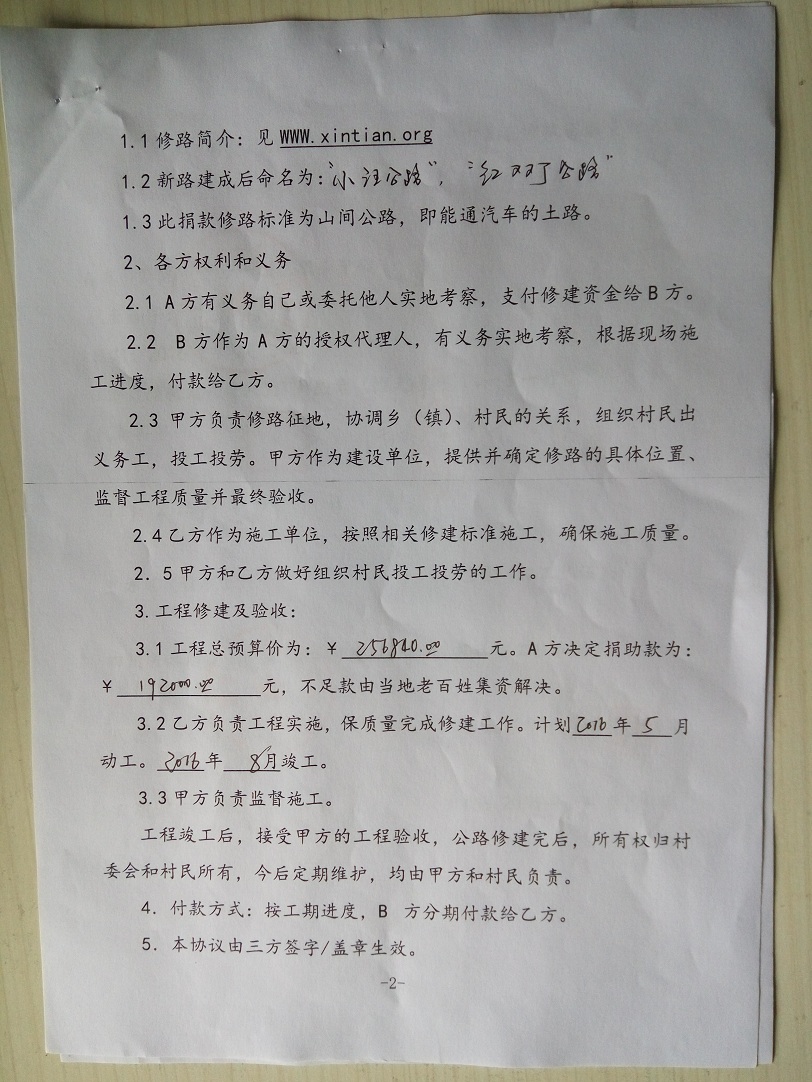 1.1修路简介：见 WWW.xintian.org
1.2新路建成后命名为：“小汪公路”，“红双丁公路”
1.3此捐款修路标准为山间公路，即能通汽车的土路。
2、各方权利和义务
2.1 A方有义务自己或委托他人实地考察，支付修建资金给B方。
2.2 B方作为A方的授权代理人，有义务实地考察，根据现场施
工进度，付款给乙方。
2.3 甲方负责修路征地，协调乡（镇）、村民的关系，组织村民出
义务工，投工投劳。甲方作为建设单位，提供并确定修路的具体位置、
监督工程质量并最终验收。
2.4乙方作为施工单位，按照相关修建标准施工，确保施工质量。
2.5甲方和乙方做好组织村民投工投劳的工作。
3.工程修建及验收：
3.1工程总预算价为：￥ 256840.00 元。A方决定捐助款为：
￥ 192000.00 元，不足款由当地老百姓集资解决。
3.2乙方负责工程实施，保质量完成修建工作。计划2016年 5 月
动工。2016年 8月竣工。
3.3甲方负责监督施工。
工程竣工后，接受甲方的工程验收，公路修建完后，所有权归村
委会和村民所有，今后定期维护，均由甲方和村民负责。
4. 付款方式：按工期进度，B 方分期付款给乙方。
5. 本协议由三方签字/盖章生效。
-2-